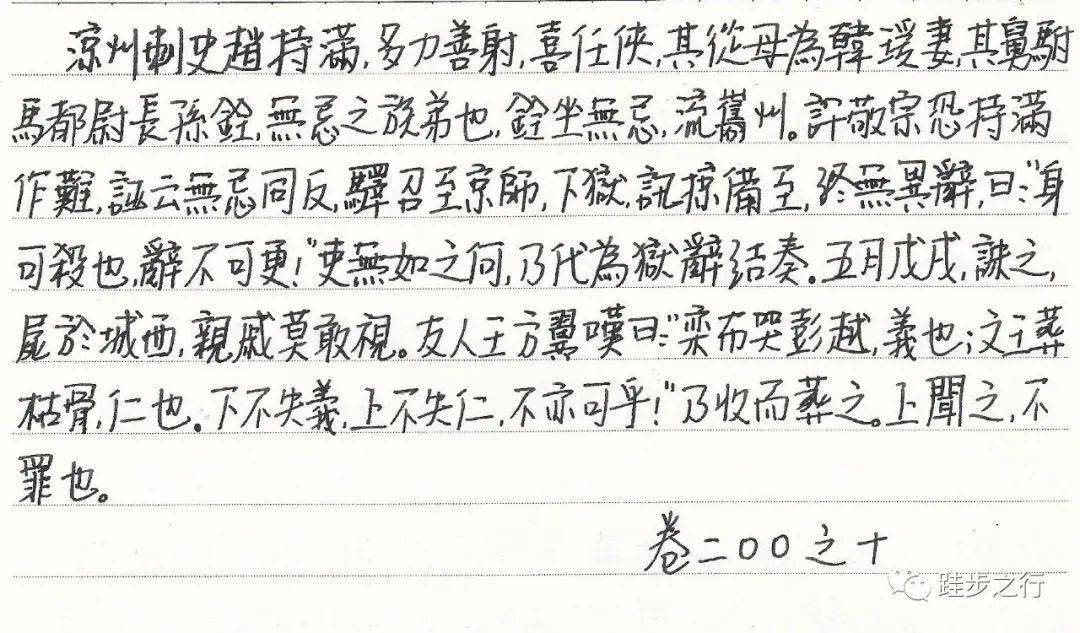 涼州刺史趙持滿,多力善射,喜任俠,其從母為韓瑗妻,其舅駙
馬都尉長孫銓,無忌之族弟也,銓坐無忌,流巂州。許敬宗恐持滿
作難,誣云無忌同反,驛召至京師,下獄,訊掠備至,終無異辭,曰:"身
可殺也,辭不可更!"吏無如之何,乃代為獄辭結奏。五月戊戌,誅之,
尸於城西,親戚莫敢視。友人王方翼嘆曰:"欒布哭彭越,義也;文王葬
枯骨,仁也。下不失義,上不失仁,不亦可乎!"乃收而葬之。上聞之,不
罪也。
卷二00之十
跬步之行